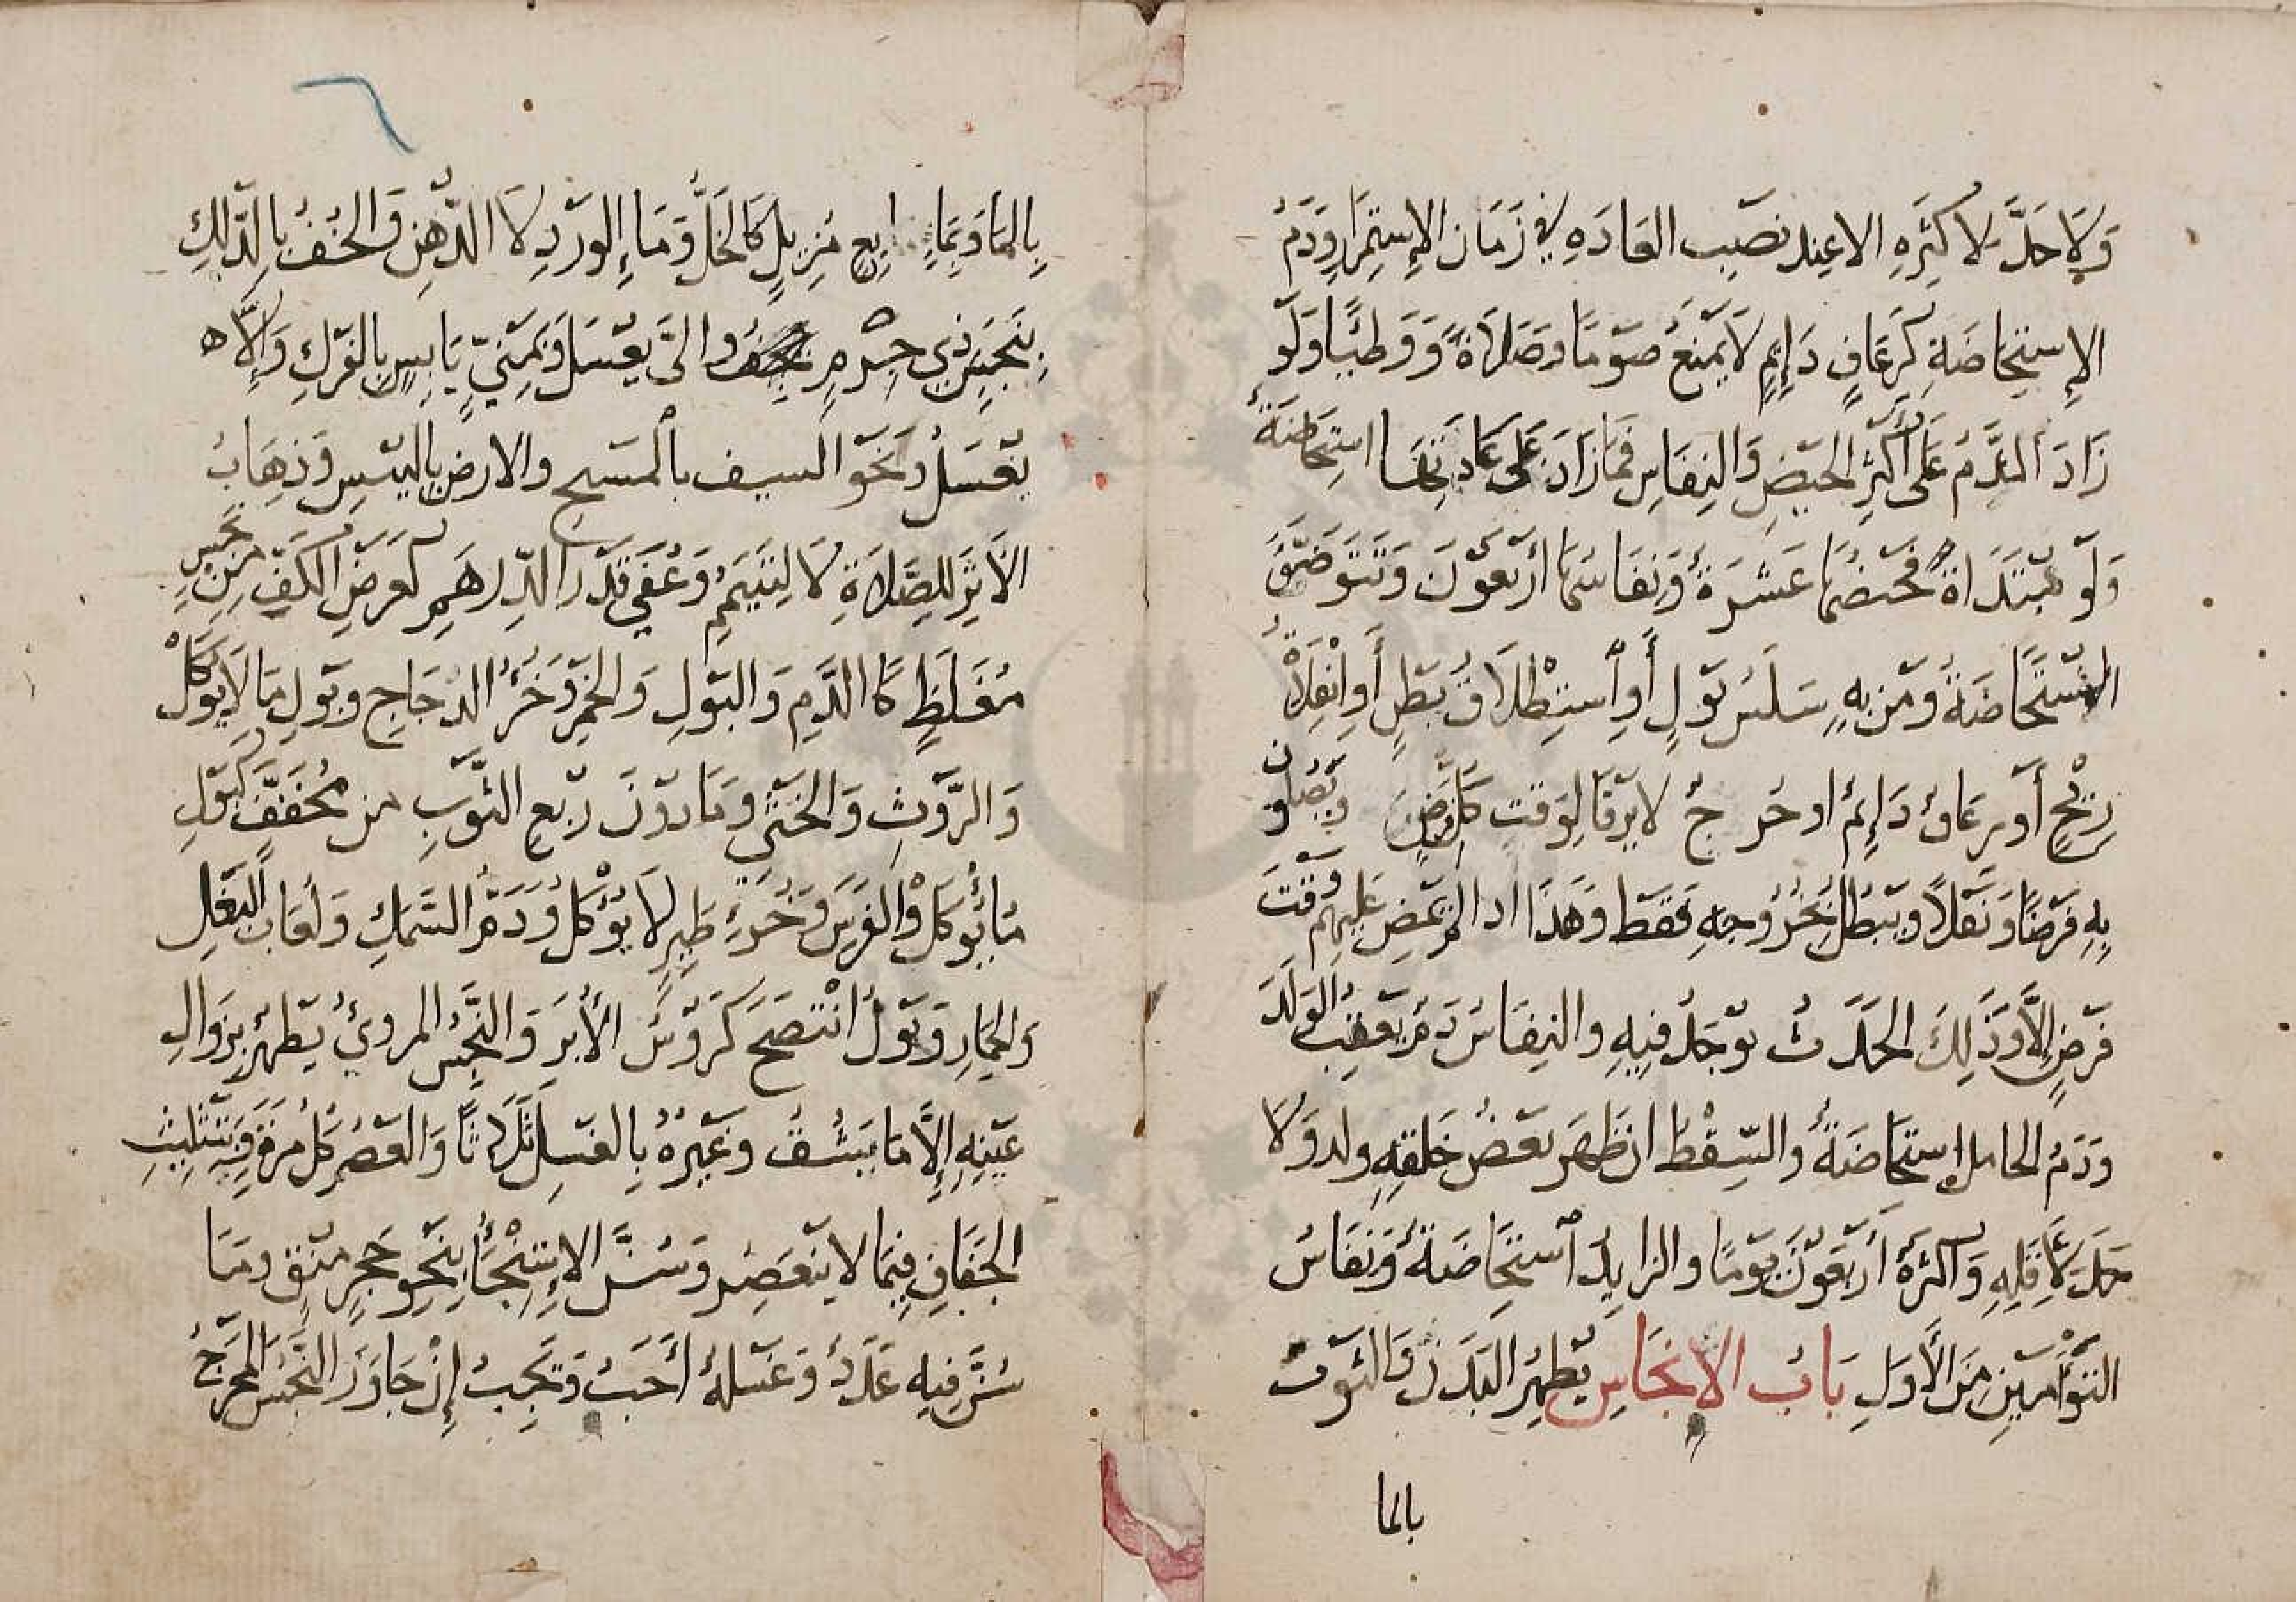 وَلَا حَدَّ لاكثَرِهِ الا عِند نَصْبِ العَادَهِ في زَمَان الإِستِمرَارِ وَدَمُ
الإِستِحَاضَةِ كَرعَافٍ دَائِمٍ لَا يَمْنَعُ صَوْمًا وَصَلَاةً وَ وَطئًا وَلَوْ
زَادَ الدَّمُ عَلَى أَكْثَرِ الحَيْضِ وَالنِفَاسِ فَمَا زَادَ عَلَى عَادَتِهَا اسْتِحَاضَةٌ
وَلَوْ مُبْتَدَاةً فَحَيْضُهَا عَشَرَةٌ وَنِفَاسُهَا أرْبَعُوْنَ وَتَتَوَضَّؤُ
المُسْتَحَاضَةُ وَمَنْ بِهِ سَلَسُ بَوْلٍ أَوِ ٱسْتِطْلَاقُ بَطْنٍ أَوِ انْفِلَاةُ
رِيْحٍ أَوْ رعَافٌ دَائِمٌ او جُرحٌ لا يرْقَا لِوَقتِ كل فَرْضٍ وَيُصَلون
بِهِ فَرْضًا وَنَفْلاً وَيَبْطُل بِخُرُوجِهِ فَقَطْ وَهَذَا اذا لَمْ يَمْضِ عَلَيهِم وَقْتَ
فَرْضٍ إِلَّا وَذَلِكَ الحَدَثُ يُوْجَدُ فِيهِ وَالنِفَاسُ دَمٌ يَعْقِبُ الوَلَدَ
وَدَمُ الحَامل اِستحَاضَةٌ وَالسِّقْطُ ان ظَهَرَ بَعْضُ خَلقِهِ ولد وَلَا
حَدَّ لاقَلِهِ وَاَكْثَرَهُ اَرْبَعُوْنَ يَوْمًا والزايِدُ ٱستحَاضَةٌ وَنِفَاسُ
التَوْأَمَيْنِ مِنَ الْأَوَلِ بَابُ الانجَاسِ يَطهُرُ البَدَنُ وَالثَوْبُ
بالما
بِالمَاءِ وَبِمَايِعٍ مُزِيلٍ كَالخَلِّ وَمَاءِ الوَرْدِ لَا الدُّهْنِ وَالخُفُّ بِالدَّلكِ
بِنَجَسٍ ذِي جِرْمٍ وإلَّا يُغْسَل وَبِمَنِيٍّ يَابِسٍ بِالفَرْكِ وَإِلَّا ه
يُغْسَلُ وَنَحْوَ السيف بالْمَسْحِ وَالارض بِاليَبسِ وَذِهَابُ
الأَثِرُ للصَّلَاةِ لَا لِتَيَمُمِ وَعُفِيَ قَدْرُ الدِّرهَمِ كَعَرْضِ الْكَفِّ مِنْ نَجَسٍ
مُغَلَظٍ كَالدَّمِ وَالبَوْلِ وَالخَمْرِ وَخَرْءِ الدَجَاجِ وَبَولِ مَا لَا يُوكَلْ
وَالرَّوْثِ وَالخَثْيِ وَمَادُوْنَ رُبْعِ الثَّوْبِ مِنْ مُخَفَّفٍ كَبَوْلِ
مَا يُؤْكَلُ وَالفَرَسِ وَخَرْءِ طَيرٍ لَا يُؤْكَلُ وَدَمُ السَّمَكِ وَلُعَابُ البَغْلِ
وَالحِمَارِ وَبَوْلٌ انْتَضَحَ كَرَؤُسِ الأُبَرِ وَالنَّجَسُ المروِيُّ يَطهُرُ بِزَوَالِ
عَيْنِهِ إِلَّا مَا يَشُقُ وَغَيْرُهُ بِالغَسلِ ثَلَاثًا وَالعَصْرِ كُلُّ مَرَةٍ وَبِتَثْلِيثِ
الجَفَافِ فِيْمَا لا يَنْعَصِرُ وَسُنَّ الإِسْتِنْجَأُ بِنَحْوِ حَجَرٍ مُنْقٍ وَمَا
سُنَّ فِيهِ عَدَدٌ وَغَسْلهُ أَحَبُّ وَيَجِبُ إِنْ جَاوَزَ النَّجسُ المَخْرَجُ